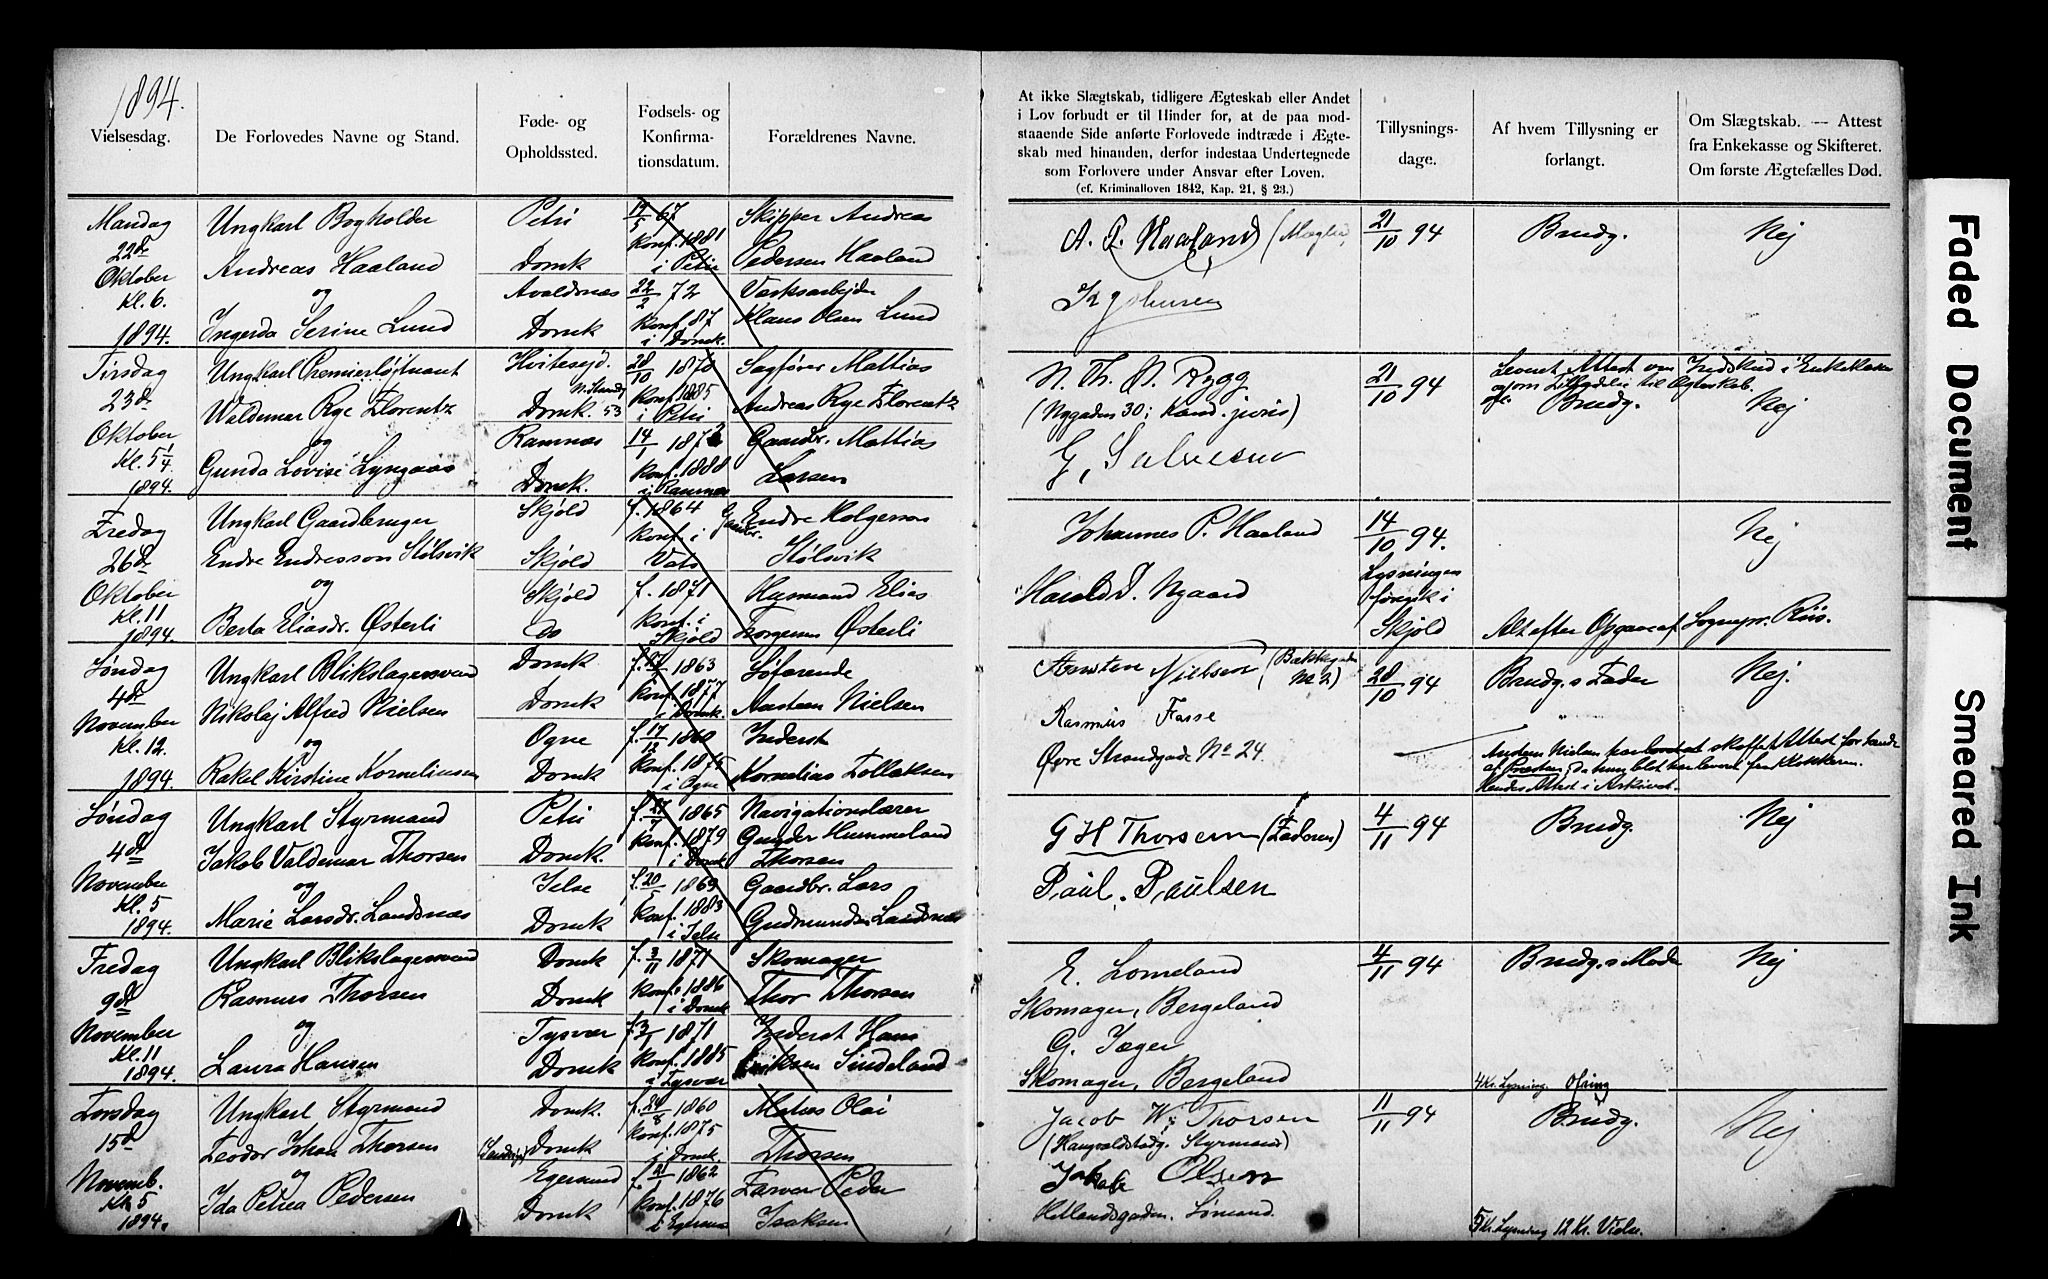 1894.
Vielsesdag.
De Forlovedes Navne og Stand.
Føde- og
Opholdssted.
Fødsels- og
Konfirma-
tionsdatum.
Forældrenes Navne.
At ikke Slægtskab, tidligere Ægteskab eller Andet
i Lov forbudt er til Hinder for, at de paa mod-
staaende Side anførte Forlovede indtræde i Ægte-
skab med hinanden, derfor indestaa Undertegnede
som Forlovere under Ansvar efter Loven.
(cf. Kriminalloven 1842, Kap. 21, § 23.)
Tillysnings-
dage.
Af hvem Tillysning er
forlangt.
Om Slægtskab. — Attest
fra Enkekasse og Skifteret.
Om første Ægtefælles Død.
Mandag
22de
Oktober
Kl. 6.
1894.
Ungkarl Bogholder
Andreas Haaland
og
Ingerda Serine Lund
Petri
Domk
Avaldsnæs
Domk
67
Konf. 1881
i Petri
22/2 72
Konf. 87
i Domk.
Skipper Andreas
Pedersen Haaland
Klaus Olsen Lund
Haaland (Mægler)
21/10 94
Brudg.
Nej
Tirsdag
23de
Oktober
Kl. 5 1/4
1894.
Ungkarl Premierløjtnant
Waldemar Rye Florentz
og
Gunda Lovise Lyngaas
Hvitesejd
Domk. 53
Ramnæs
Domk.
28/10 1870
Konf. 1885
i Petri
14/1 187
Konf. 1888
i Ramnæs
Sagfører Mattias
Andreas Rye Florentz
Gaardbr. Mattias
Larsen
N. Th. N. Rygg
(Nygaden 30; Kand. juris)
G. Salvesen
21/10 94
Leveret Attest om Indskud i Enkekassen
og om Tilladelse til Ægteskab.
Brudg.
Nej
Fredag
26de
Oktober
Kl. 11
1894.
Ungkarl Gaardbruger
Endre Endresson Stølsvik
og
Berta Eliasdr. Østerli
Skjold
Skjold
Skjold
Do
f. 1864
Konf. i
Vats
f. 1871
Konf. i
Skjold
Gaardbr. Endre Holgerson
Stølsvik
Husmand Elias
Torgersen Østerli
Johannes P. Haaland
Harald T. Nygaard
14/10 94.
Lysningen
foregik i
Skjold
Alt efter Opgave af Sognepr. Riis.
Nej
Søndag
4de
November
Kl. 12.
1894.
Ungkarl Blikslagersvend
Nikolaj Alfred Nielsen
og
Rakel Kirstine Korneliussen
Domk
Domk
Ogne
Domk
1863
Konf. 1877
i Domk.
f. 17/12 1860
Konf. 1875
i Ogne
Søfarende
Aasteen Nielsen
Inderst
Kornelius Tollaksen
Nielsen (Bakkegaden
No 2)
Rasmus Fasse
Øvre Strandgade No 24.
28/10 94
Brudg.s Fader
Nej.
Hendes Attest i Arkivet.
Søndag
4de
November
Kl. 5
1894.
Ungkarl Styrmand
Jakob Valdemar Thorsen
og
Marie Larsdr. Landsnæs
Petri
Domk.
Jelse
Domk
f. 27/7 1865
Konf. 1879
i Domk
f. 20/5 1869
Konf. 1883
i Jelse
Navigationslærer
Gunder Hummeland
Thorsen
Gaardbr. Lars
Gudmundsen Landsnæs
G H Thorsen (Faderen)
Paul. Paulsen
4/11 94
Brudg.
Nej
Fredag
9de
November
Kl. 11
1894.
Ungkarl Blikslagersvend
Rasmus Thorsen
og
Laura Hansen
Domk
Domk
Tysvær
Domk
f. 3/11 1871
Konf. 1886
i Domk
f. 3/1 1871
Konf. 1885
i Tysvær
Skomager
Thor Thorsen
Inderst Hans
Eriksen Sindeland
E. Lomeland
Skomager, Bergeland
G. Jæger
Skomager, Bergeland
4/11 94
Brudg.s Mode
Nej
4 Kr. Lysning. Ofring
Torsdag
15de
Novemb.
Kl. 5
1894.
Ungkarl Styrmand
Teodor Johan Thorsen
og
Ida Petrea Pedersen
Domk.
Domk
Egersund
Domk
f. 24/8 1860
Konf. 1875
i Domk.
f. 21/ 1862
Konf. 1876
i Egersund
Mathias Olai
Thorsen
Farver Peder
Isaksen
Jacob W. Thorsen
(Haugvaldstadg. Styrmand)
Jakob Olsen
Hetlandsgaden. Sømand.
11/11 94
Brudg.
Nej
5 Kr. Lysning 12 Kr. Vielse.
Faded Document
Smeared Ink